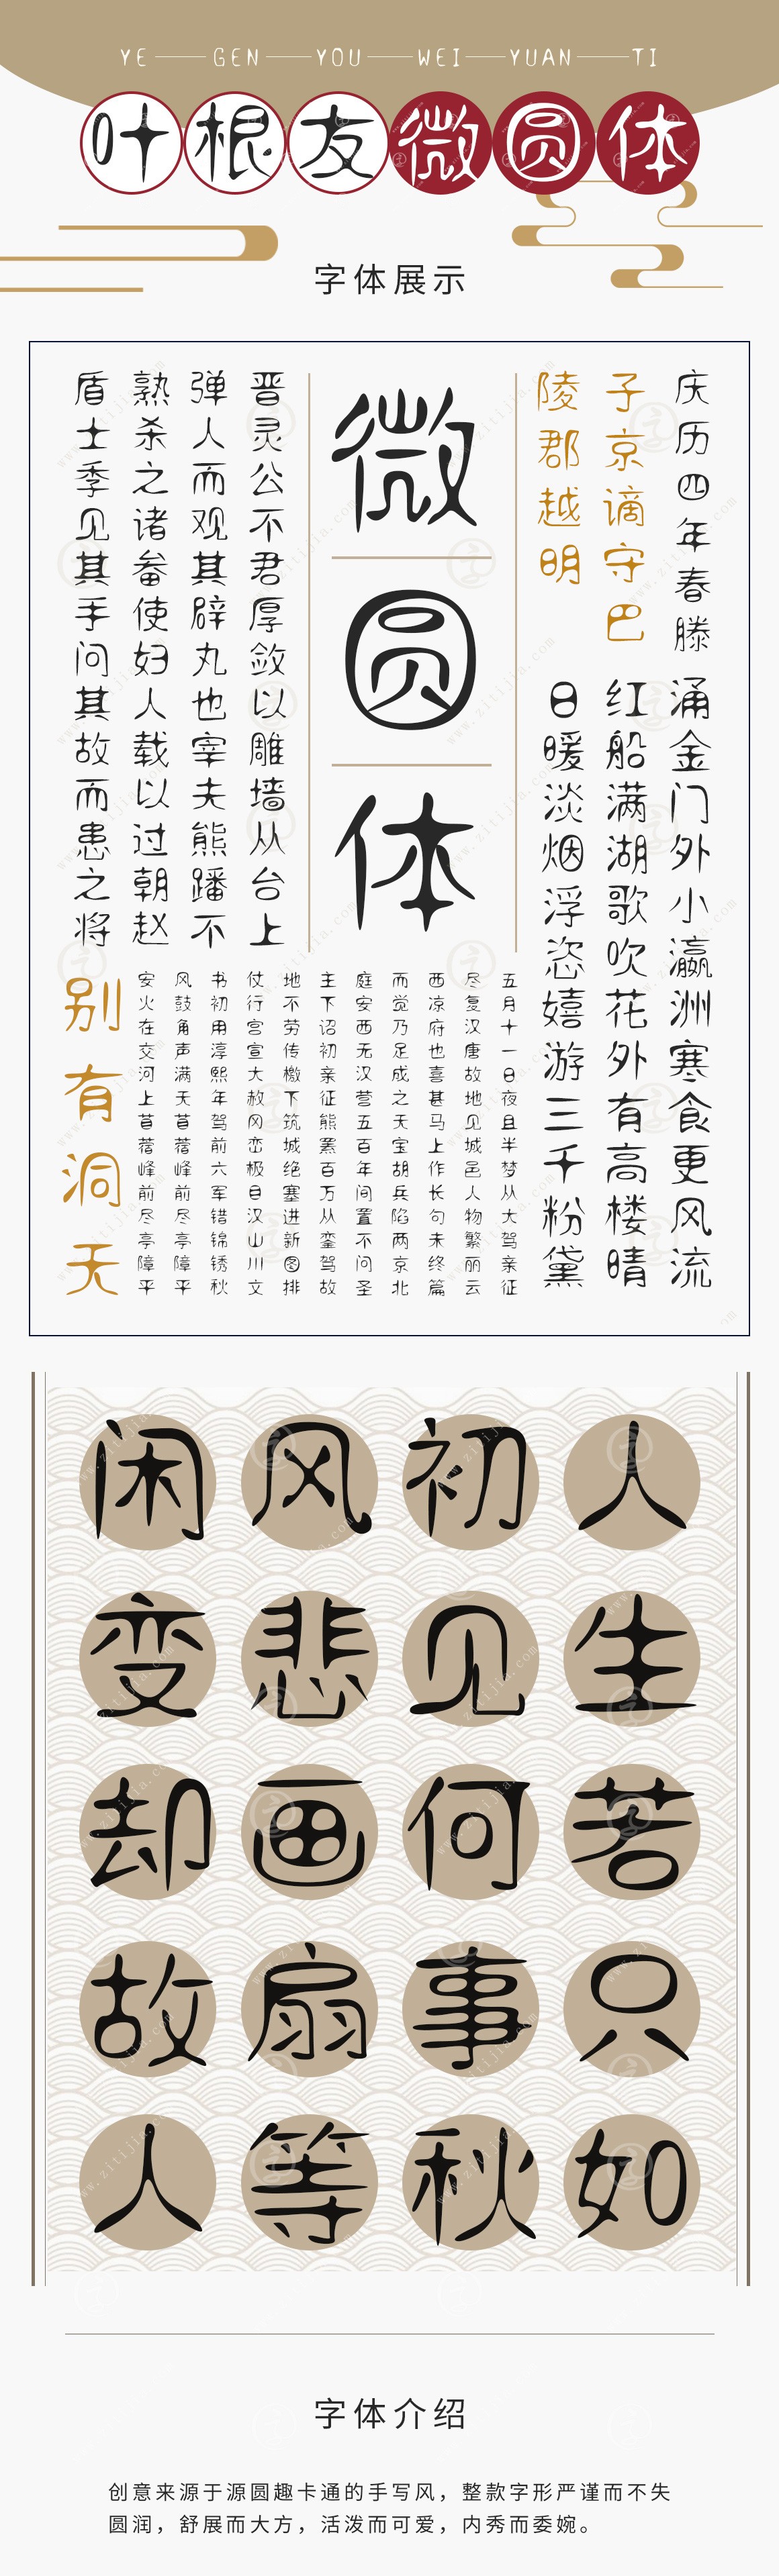 YE GEN YOU WEI YUAN TI
叶根友微圆体
字体展示
庆历四年春滕
子京谪守巴
陵郡越明
涌金门外小瀛洲寒食更风流
红船满湖歌吹花外有高楼晴
日暖淡烟浮恣嬉游三千粉黛
微圆体
晋灵公不君厚敛以雕墙从台上
弹人而观其辟丸也宰夫熊蹯不
熟杀之诸畚使妇人载以过朝赵
盾士季见其手问其故而患之将
五月十一日夜且半梦从大驾亲征
尽复汉唐故地见城邑人物繁丽云
西凉府也喜甚马上作长句未终篇
而觉乃足成之天宝胡兵陷两京北
庭安西无汉营五百年间置不问圣
主下诏初亲征熊罴百万从銮驾故
地不劳传檄下筑城绝塞进新图排
仗行宫宣大赦冈峦极目汉山川文
书初用淳熙年驾前六军错锦绣秋
风鼓角声满天苜蓿峰前尽亭障平
安火在交河上苜蓿峰前尽亭障平
别有洞天
人生若只如
初见何事秋
风悲画扇等
闲变却故人
字体介绍
创意来源于源圆趣卡通的手写风，整款字形严谨而不失
圆润，舒展而大方，活泼而可爱，内秀而委婉。
www.zitijia.com